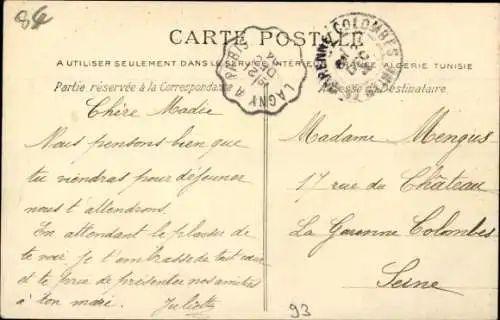 86
CARTE POSTALE
A UTILISER SEULEMENT DANS LE SERVICE INTÉRIEUR FRANCE ALGERIE TUNISIE
Partie réservée à la Correspondance
Adresse du Destinataire.
LAGNY A PARIS
GARENNE-COLOMBES
Chère Madée
Nous pensons bien que
tu viendras pour déjeuner
nous t'attendrons.
En attendant le plaisir de
te voir je t'embrasse de tout cœur
et te prie de présenter nos amitiés
à ton mari. Juliette
Madame Mengus
17 rue du Château
La Garenne Colombes
Seine
93